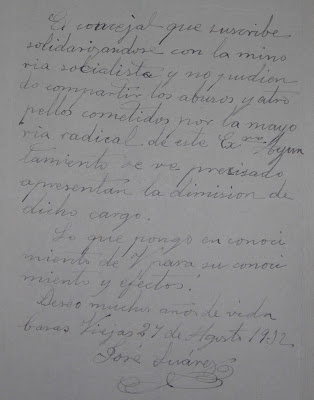 El concejal que suscribe
solidarizandose con la mino
ria socialista y no pudien
do compartir los abusos y atro
pellos cometidos por la mayo
ria radical de este Exmo Ayun
tamiento se ve precisado
apresentar la dimision de
dicho cargo.
Lo que pongo en conoci
miento de V para su conoci
miento y efectos.
Deseo muchos años de vida
Casas Viejas 27 de Agosto 1932
José Suárez